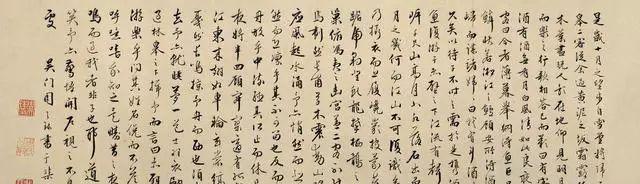 是歲十月之望步自雪堂將歸
皋二客從余過黃泥之坂霜露
木葉盡脫人影在地仰見明月
而樂之行歌相答已而歎曰有客
酒有酒無肴月白風清如此良夜
客曰今者薄暮舉網得魚巨口
鱗狀如松江之鱸顧安所得酒
歸而謀諸婦婦曰我有斗酒藏
久矣以待子不時之需於是攜酒
魚復游於赤壁之下江流有聲
岸千尺山高月小水落石出
月之幾何而江山不可復識
乃攝衣而上履巉巖披蒙茸
踞虎豹登虬龍攀棲鶻
巢俯馮夷之幽宮蓋二客不能
焉劃然長嘯草木震動山
應風起水涌予亦悄然而悲
然而恐凜乎其不可留也反而
舟放乎中流聽其所止而休
夜將半四顧寂寥適有孤
江東來翅如車輪玄裳縞
戛然長鳴掠予舟而西也須
去予亦就睡夢一道士羽衣
過臨皋之下揖予而言曰赤
遊樂乎問其姓名俛而不答
呼噫嘻我知之矣疇昔之
鳴而過我者非子也耶道
笑予亦驚悟開戶視之不見
處
吳門周之冕書于